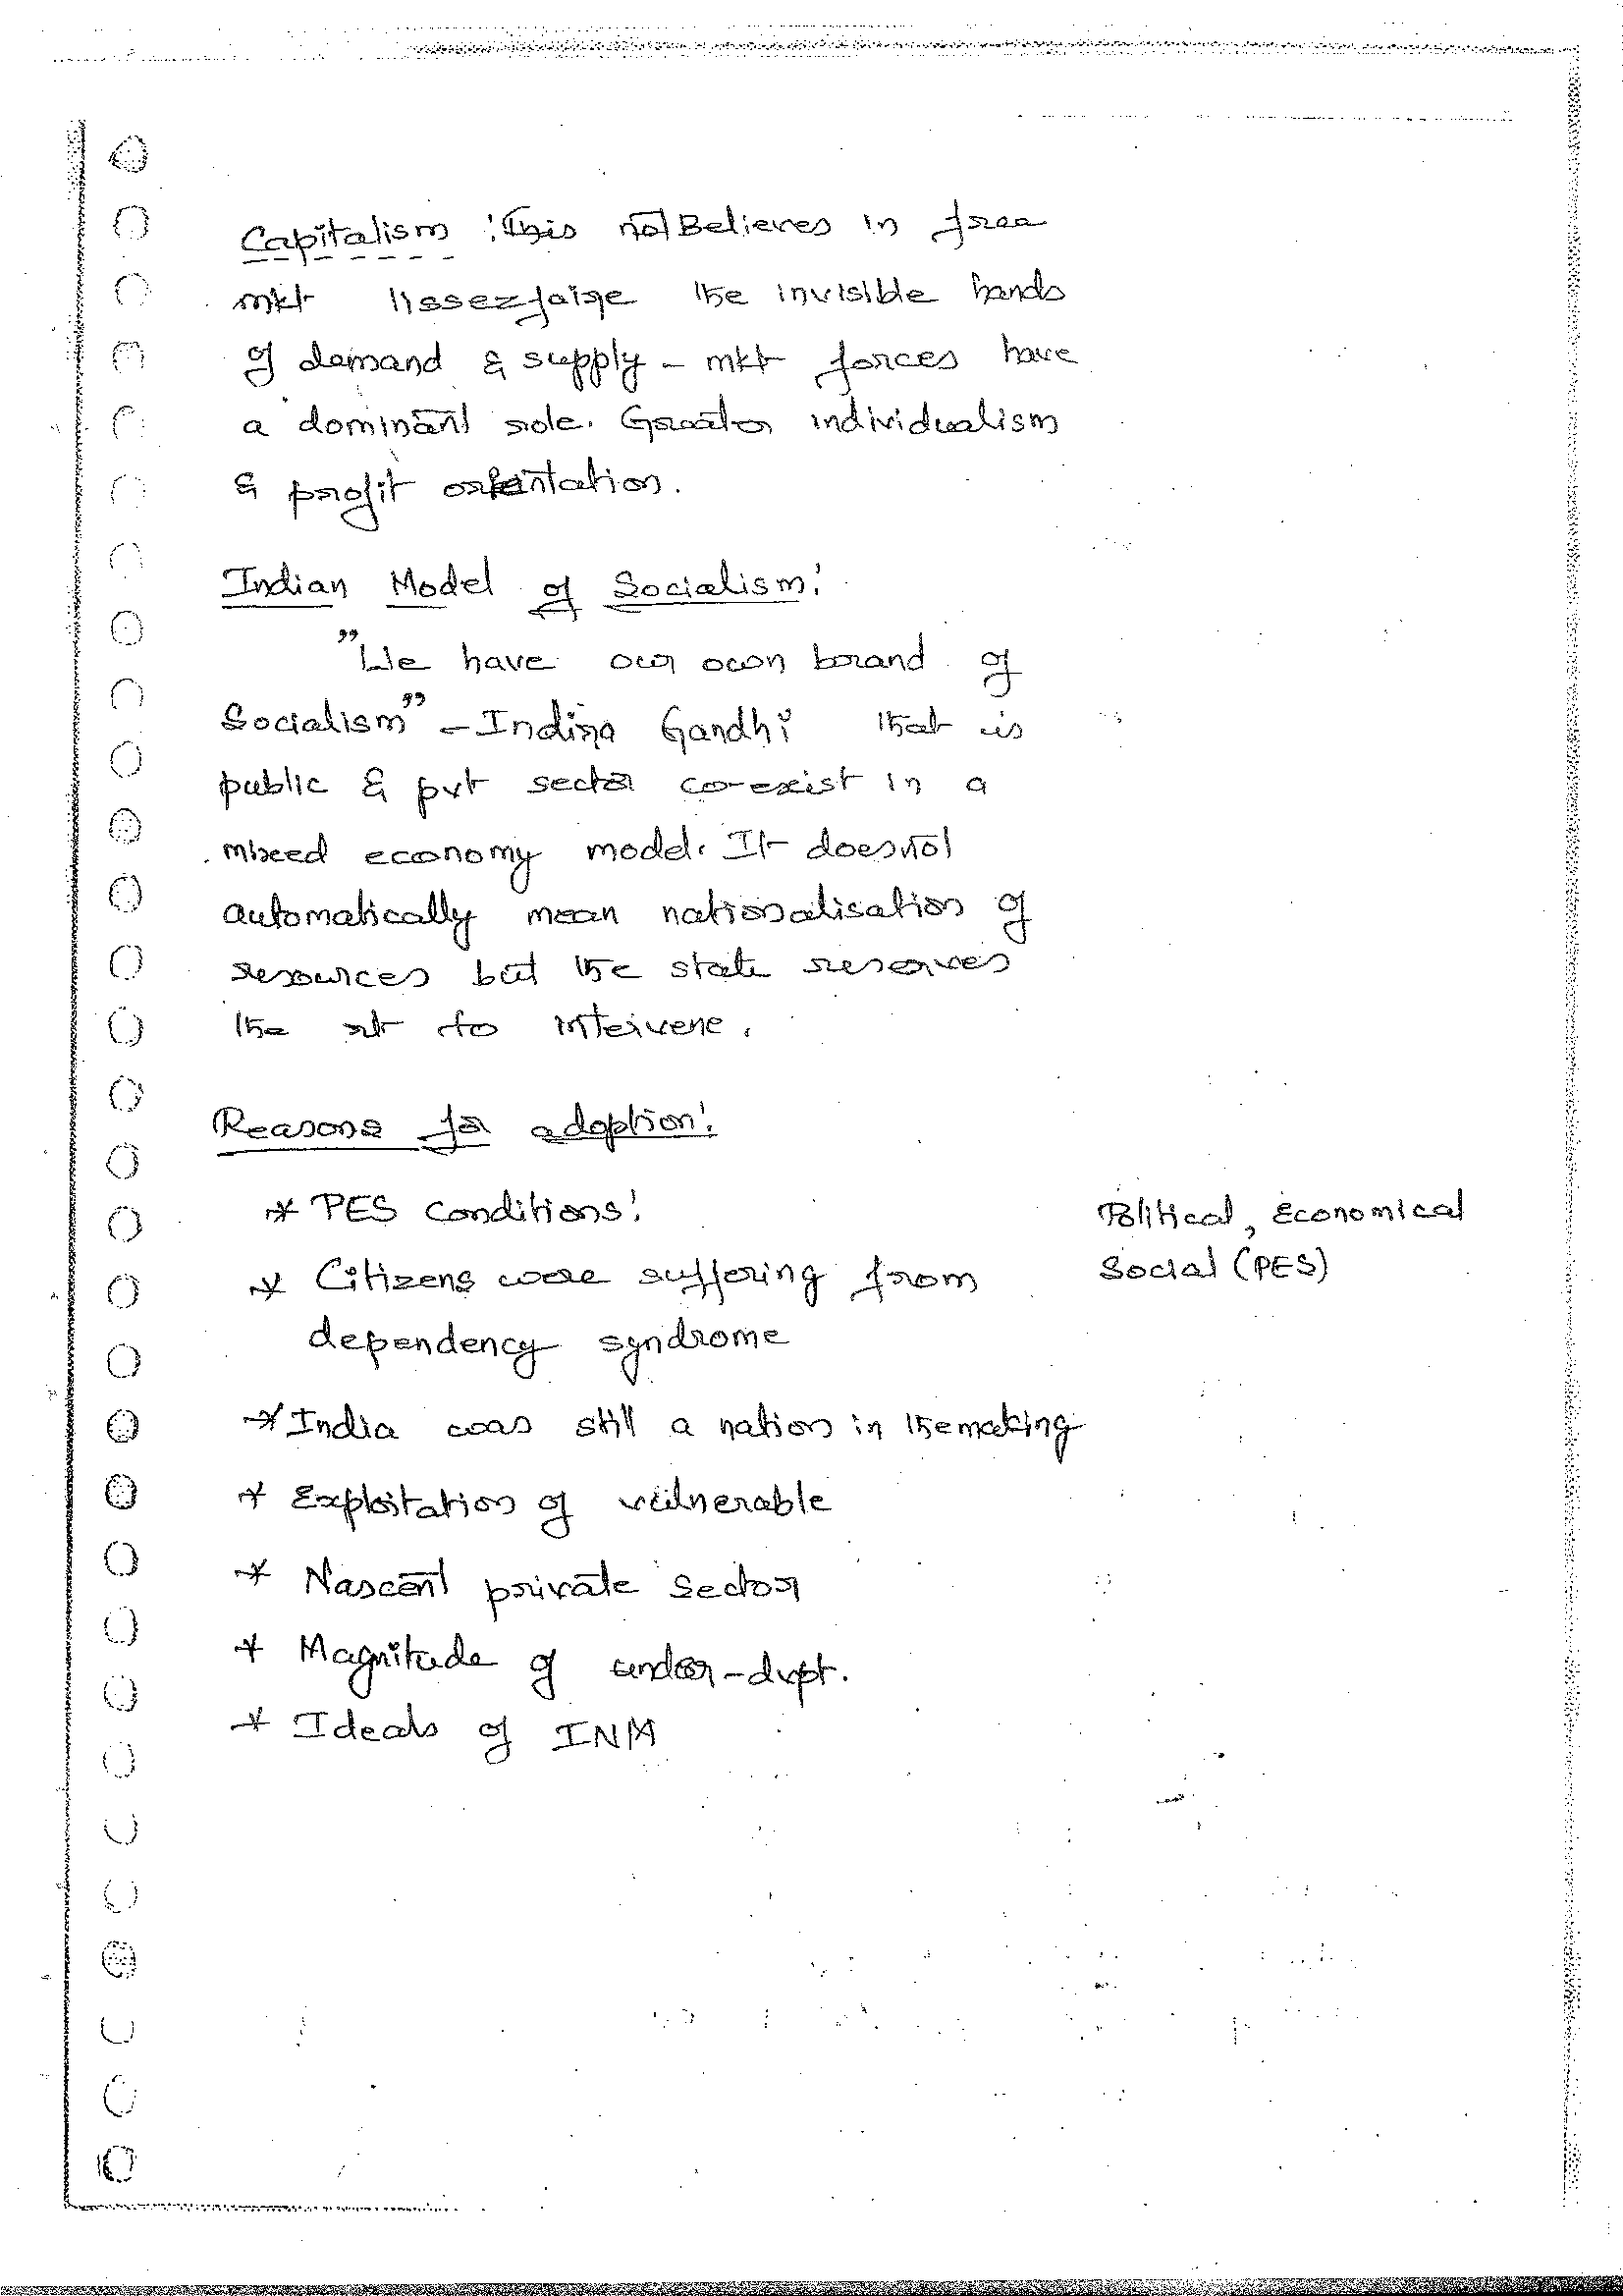 Capitalism : This not Believes in free
mkt lissezfaire the invisible hands
of demand & supply - mkt forces have
a dominant role. Greater individualism
& profit orientation.
Indian Model of Socialism:
"We have our own brand of
Socialism" - Indira Gandhi that is
public & pvt sector co-exist in a
mixed economy model. It does not
automatically mean nationalisation of
resources but the state reserves
the rt to intervene.
Reasons for adoption:
* PES Conditions:
Political, Economical
Social (PES)
* Citizens were suffering from
dependency syndrome
* India was still a nation in the making
* Exploitation of vulnerable
* Nascent private sector
* Magnitude of under-dvpt.
* Ideals of INM